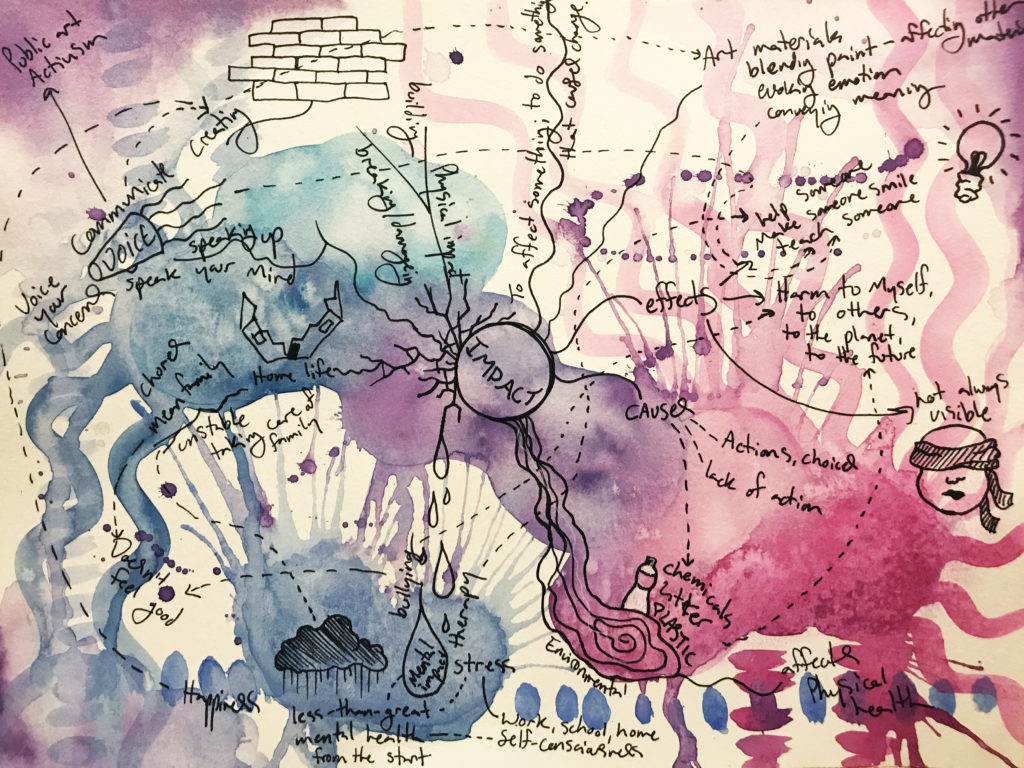 Public art
Activism
Creating
Communicate
VOICE
speaking up
speak your Mind
Voice
your
concerns
building
breaking/damaging
Physical impact
To affect something; to do something
that caused change
Art materials
blending paint - affecting other
materials
evoking emotion
conveying meaning
help someone
Make someone smile
teach someone
effects
Harm to Myself,
to others,
to the planet,
to the future
not always
visible
IMPACT
causes
Actions, choices
lack of action
chemicals
litter
PLASTIC
Environmental
affects
Physical
health
Home life
chores
mean family
unstable
taking care of
family
Doesn't
feel
good
Happiness
bullying
therapy
Mental
impact
stress
less-than-great
mental health
from the start
Work, school, home
self-consciousness